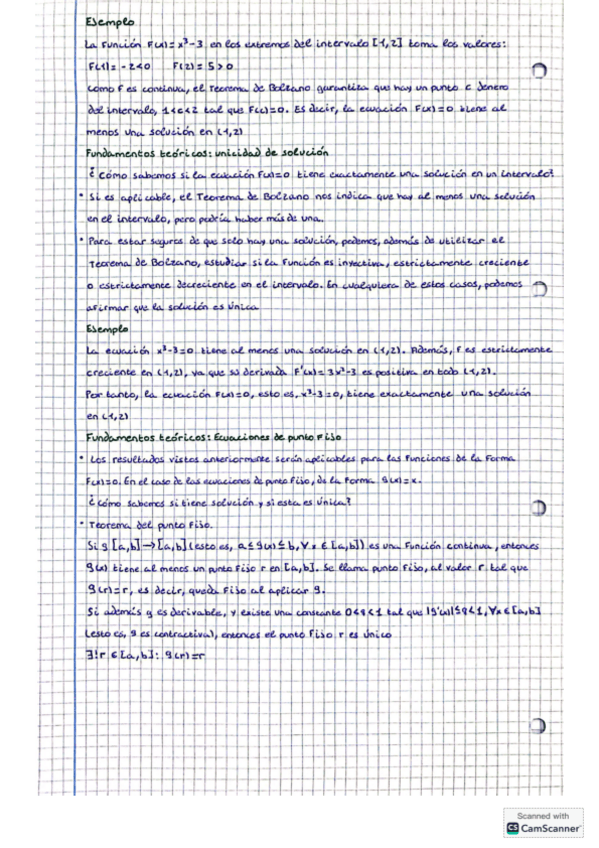 Ejemplo
La función F(x)=x³-3 en los extremos del intervalo [1,2] toma los valores:
F(1)=-2<0 F(2)=5>0
Como F es continua, el Teorema de Bolzano garantiza que hay un punto c denero
del intervalo, 1<c<2 tal que F(c)=0. Es decir, la ecuación F(x)=0 tiene al
menos una solución en (1,2)
Fundamentos teóricos: unicidad de solución
¿Cómo sabemos si la ecuación F(x)=0 tiene exactamente una solución en un intervalo?
• Si es aplicable, el Teorema de Bolzano nos indica que hay al menos una solución
en el intervalo, pero podría haber más de una.
• Para estar seguros de que solo hay una solución, podemos, además de utilizar el
Teorema de Bolzano, estudiar si la función es inyectiva, estrictamente creciente
o estrictamente decreciente en el intervalo. En cualquiera de estos casos, podemos
afirmar que la solución es única
Ejemplo
La ecuación x³-3=0 tiene al menos una solución en (1,2). Además, F es estrictamente
creciente en (1,2), ya que su derivada F'(x)=3x²-3 es positiva en todo (1,2).
Por tanto, la ecuación F(x)=0, esto es, x³-3=0, tiene exactamente una solución
en (1,2)
Fundamentos teóricos: Ecuaciones de punto Fijo
• Los resultados vistos anteriormente serán aplicables para las funciones de la forma
F(x)=0. En el caso de las ecuaciones de punto Fijo, de la forma g(x)=x.
¿Cómo sabemos si tiene solución y si esta es única?
• Teorema del punto Fijo.
Si g [a,b]→[a,b] (esto es, a≤g(x)≤b, ∀x∈[a,b]) es una función continua, entonces
g(x) tiene al menos un punto Fijo r en [a,b]. Se llama punto Fijo, al valor r tal que
g(r)=r, es decir, queda Fijo al aplicar g.
Si además g es derivable, y existe una constante 0<q<1 tal que |g'(x)|≤q<1, ∀x∈[a,b]
(esto es, g es contractiva), entonces el punto Fijo r es único
∃!r∈[a,b]: g(r)=r
Scanned with
CS CamScanner